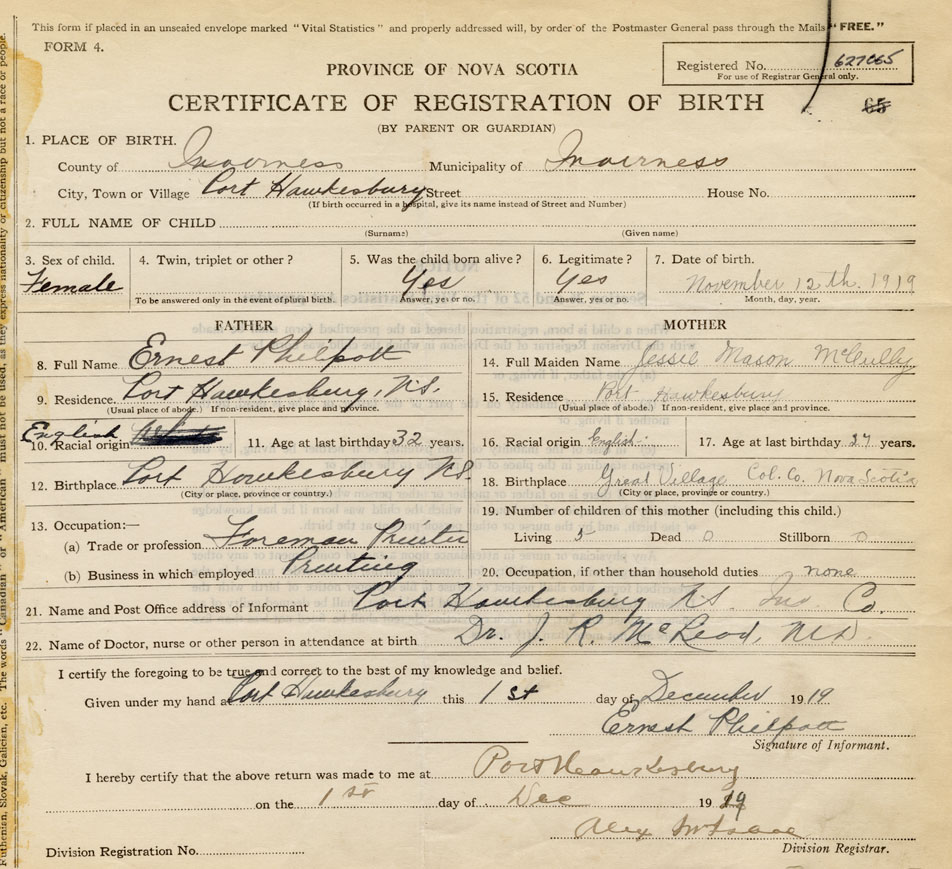 This form if placed in an unsealed envelope marked "Vital Statistics" and properly addressed will, by order of the Postmaster General pass through the Mails "FREE."
FORM 4.
Registered No. 627065
For use of Registrar General only.
PROVINCE OF NOVA SCOTIA
CERTIFICATE OF REGISTRATION OF BIRTH
65
(BY PARENT OR GUARDIAN)
1. PLACE OF BIRTH.
County of Inverness Municipality of Inverness
City, Town or Village Port Hawkesbury Street House No.
(If birth occurred in a hospital, give its name instead of Street and Number)
2. FULL NAME OF CHILD
(Surname) (Given name)
3. Sex of child. 4. Twin, triplet or other? 5. Was the child born alive? 6. Legitimate? 7. Date of birth.
Female Yes Yes November 12th. 1919
To be answered only in the event of plural birth. Answer, yes or no. Answer, yes or no. Month, day, year.
FATHER MOTHER
8. Full Name Ernest Philpott 14. Full Maiden Name Jessie Mason McCully
9. Residence. Port Hawkesbury, N.S. 15. Residence Port Hawkesbury
(Usual place of abode.) If non-resident, give place and province. (Usual place of abode.) If non-resident, give place and province.
English
10. Racial origin White 11. Age at last birthday 32 years. 16. Racial origin English 17. Age at last birthday 27 years.
12. Birthplace Port Hawkesbury N.S. 18. Birthplace Great Village Col. Co. Nova Scotia
(City or place, province or country.) (City or place, province or country.)
13. Occupation:— 19. Number of children of this mother (including this child.)
(a) Trade or profession Foreman Printer Living 5 Dead 0 Stillborn 0
(b) Business in which employed Printing 20. Occupation, if other than household duties none
21. Name and Post Office address of Informant Port Hawkesbury N.S. Inv Co.
22. Name of Doctor, nurse or other person in attendance at birth Dr. J. R. McLeod, M.D.
I certify the foregoing to be true and correct to the best of my knowledge and belief.
Given under my hand at Port Hawkesbury this 1st day of December 1919
Ernest Philpott
Signature of Informant.
I hereby certify that the above return was made to me at Port Hawkesbury
on the 1st day of Dec 1919
Alex McIsaac
Division Registrar.
Division Registration No.